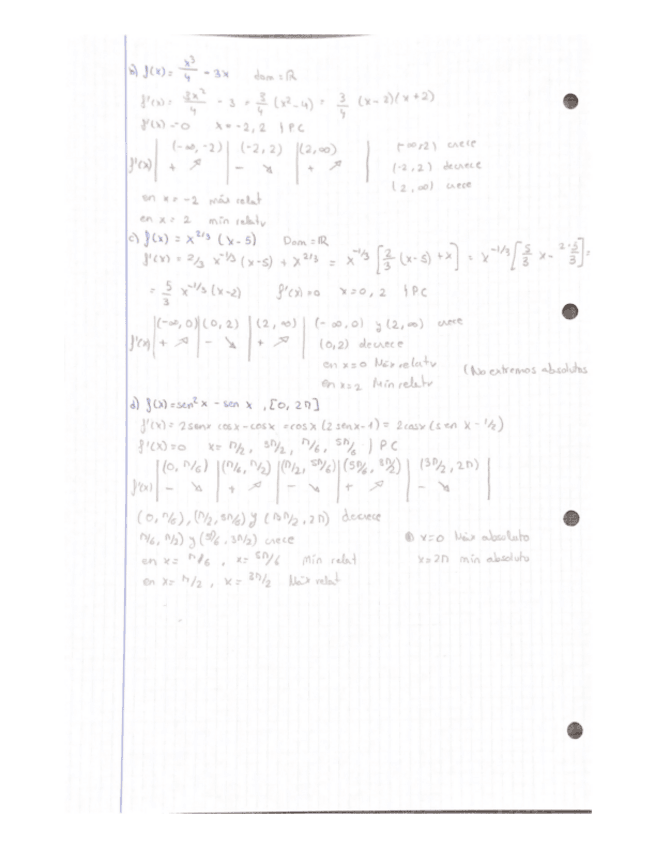 b) f(x) = x³/4 - 3x    dom = ℝ
f'(x) = 3x²/4 - 3 = 3/4 (x² - 4) = 3/4 (x-2)(x+2)
f'(x) = 0    x = -2, 2 } PC
(-∞, -2) | (-2, 2) | (2, ∞)    (-∞, 2) crece
f'(x) | + ↗ | - ↘ | + ↗    (-2, 2) decrece
(2, ∞) crece
en x = -2 máx relat
en x = 2 mín relatv
c) f(x) = x^2/3 (x-5)    Dom = ℝ
f'(x) = 2/3 x^-1/3 (x-5) + x^2/3 = x^-1/3 [2/3 (x-5) + x] = x^-1/3 [5/3 x - 2·5/3] =
= 5/3 x^-1/3 (x-2)    f'(x) = 0    x = 0, 2 } PC
(-∞, 0) | (0, 2) | (2, ∞) | (-∞, 0) y (2, ∞) crece
f'(x) | + ↗ | - ↘ | + ↗    (0, 2) decrece
en x = 0 Máx relatv    (No extremos absolutos
en x = 2 Mín relatv
d) f(x) = sen² x - sen x , [0, 2π]
f'(x) = 2senx cosx - cosx = cosx (2 senx - 1) = 2cosx (sen x - 1/2)
f'(x) = 0    x = π/2, 3π/2, π/6, 5π/6 } PC
(0, π/6) | (π/6, π/2) | (π/2, 5π/6) | (5π/6, 3π/2) | (3π/2, 2π)
f'(x) | - ↘ | + ↗ | - ↘ | + ↗ | - ↘
(0, π/6), (π/2, 5π/6) y ( π/2, 2π) decrece
π/6, π/2) y (5π/6, 3π/2) crece    x = 0 Máx absoluto
en x = π/6 , x = 5π/6 Mín relat    x = 2π mín absoluto
en x = π/2 , x = 3π/2 Máx relat